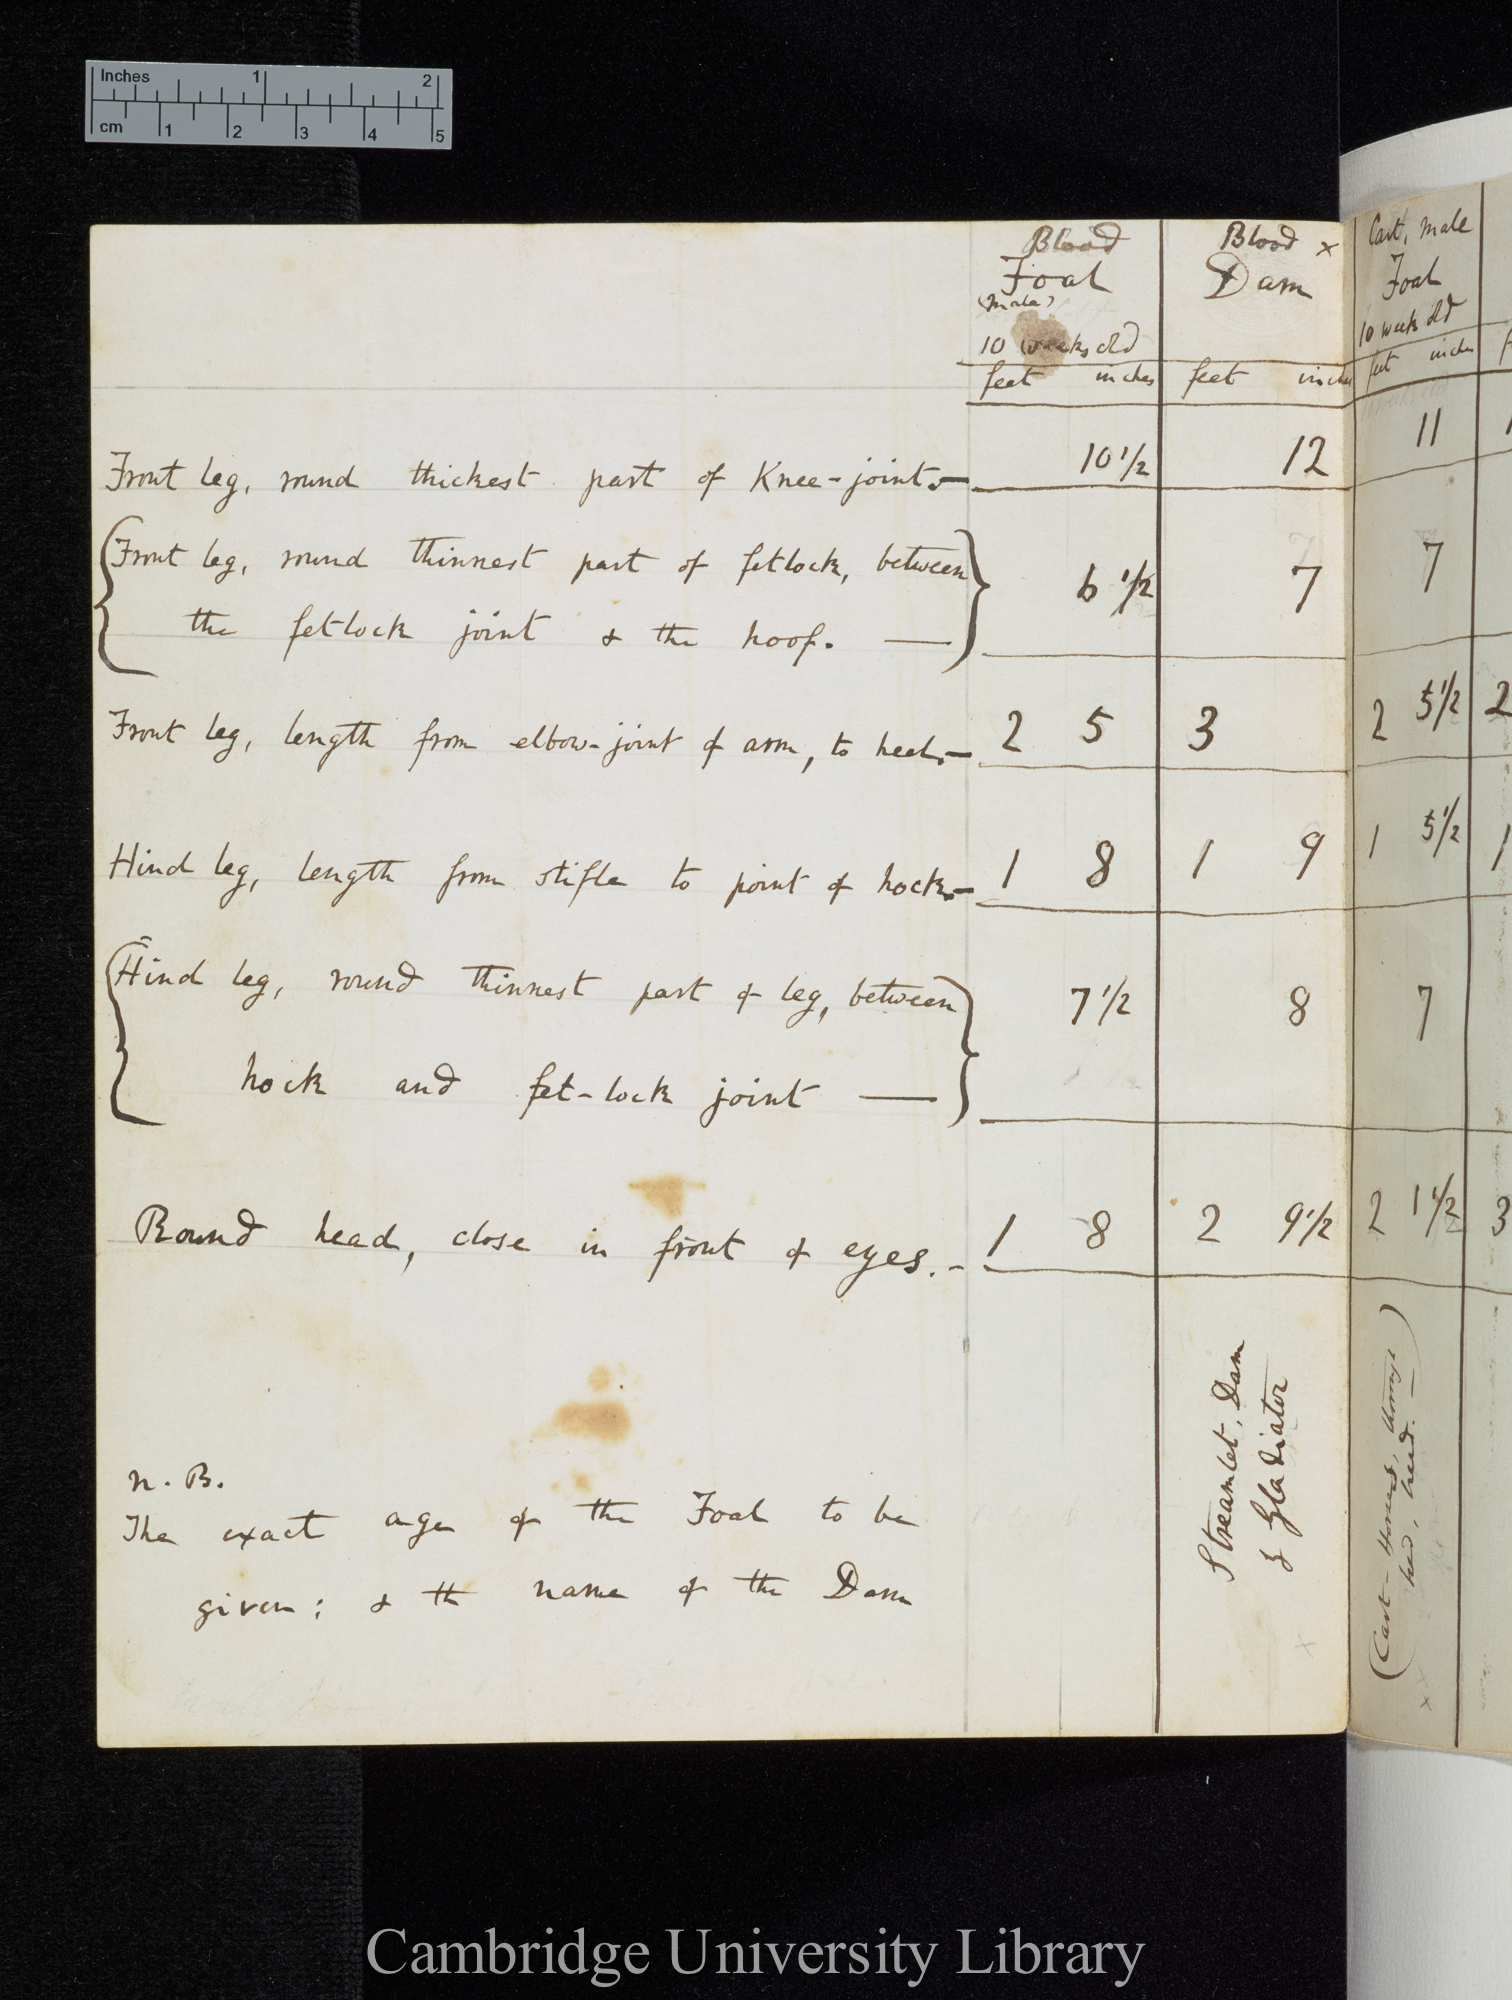 Inches 1 2
cm 1 2 3 4 5
Blood Blood x Cart, male
Foal Dam Foal
(Male)
10 weeks old 10 week old
feet inches feet inches feet inches
Front leg, round thickest part of Knee-joint. — 10 1/2 12 11
Front leg, round thinnest part of fetlock, between
the fetlock joint & the hoof. — 6 1/2 7 7
Front leg, length from elbow-joint of arm, to heel. — 2 5 3 2 5 1/2 2
Hind leg, length from stifle to point of hock. — 1 8 1 9 1 5 1/2 1
Hind leg, round thinnest part of leg, between 7 1/2 8 7
hock and fet-lock joint —
Round head, close in front of eyes. — 1 8 2 9 1/2 2 1 1/2 3
Streamlet, Dam
of Gladiator
(Cart-Horses,
bred. —
N.B.
The exact age of the Foal to be
given; & th name of the Dam
Cambridge University Library